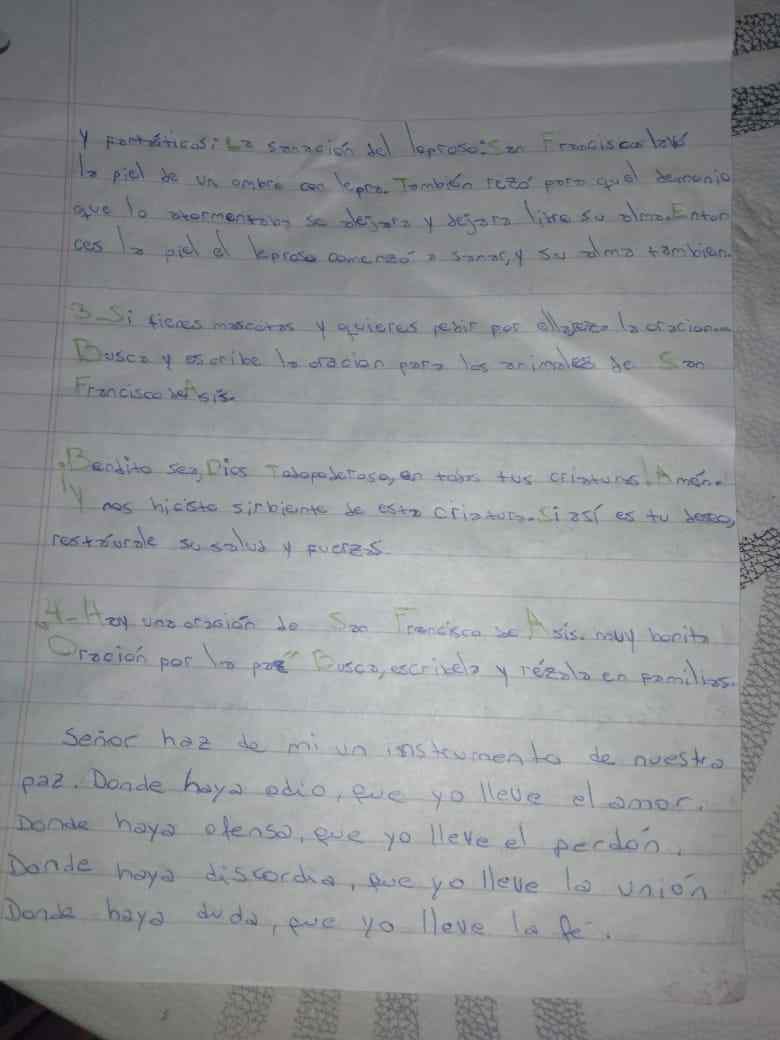 y fantásticos: La sanación del leproso: San Francisco lavó
la piel de un ombre con lepra. También rezó para qué el demonio
que lo atormentaba se dejara y dejara libre su alma. Enton
ces la piel el leproso comenzó a sanar, y su alma tambien.
3- Si tienes mascotas y quieres pedir por ellas la oracion
Busca y escribe la oracion para los animales de San
Francisco de Asís.
Bendito sea, Dios Todopoderoso, en todas tus criaturas! Amén.
Y nos hiciste sirbiente de esta criatura. Si así es tu deseo,
restáurale su salud y fuerzas
4- Hay una oración de San Francisco de Asís. muy bonita
Oración por la paz" Busca, escribela y rézala en familias.
Señor haz de mi un instrumento de nuestra
paz. Donde haya odio, que yo lleve el amor.
Donde haya ofensa, que yo lleve el perdón.
Donde haya discordia, que yo lleve la unión
Donde haya duda, que yo lleve la fé.